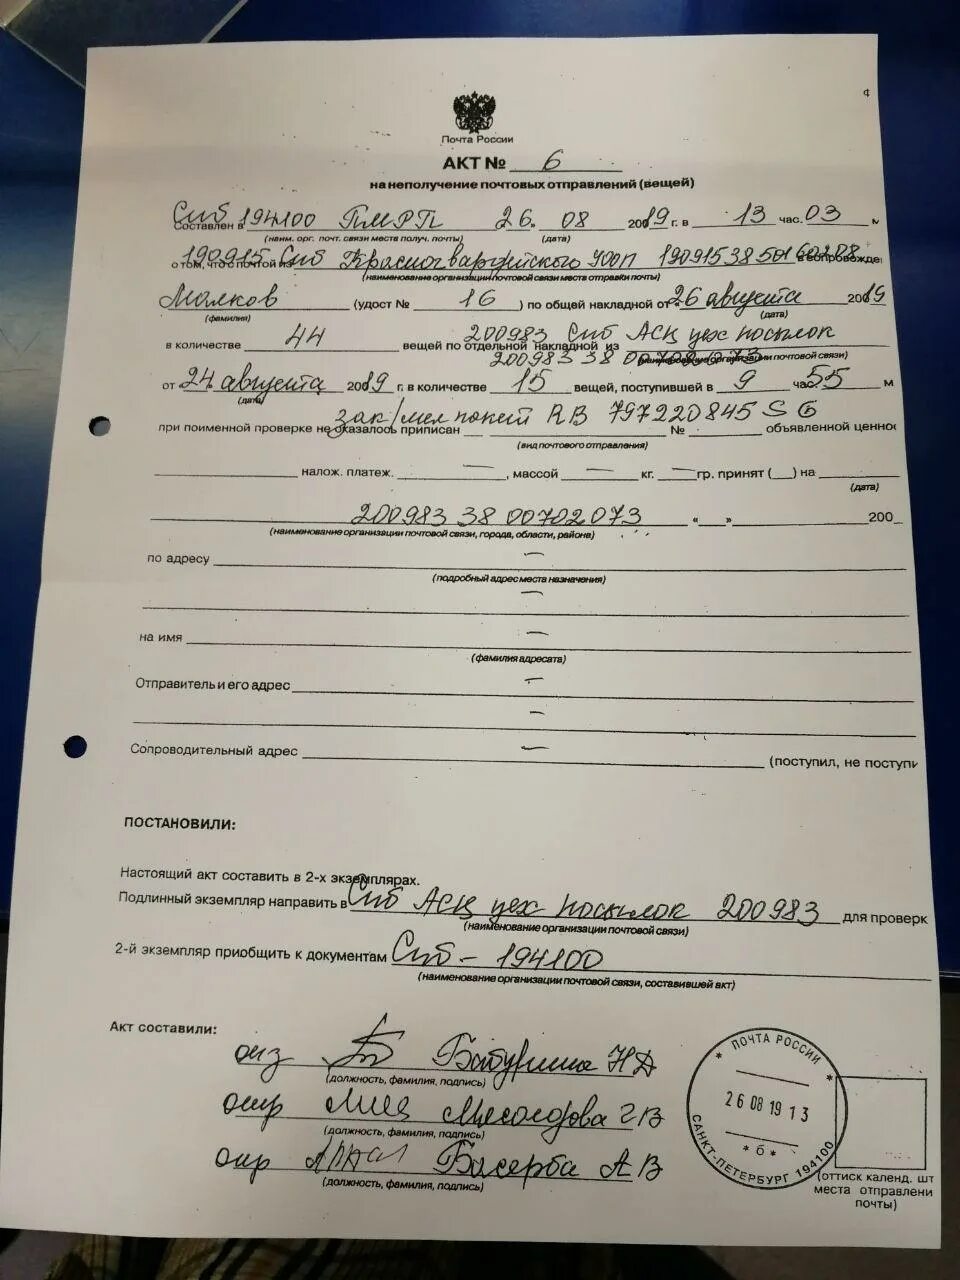 Почта России
АКТ № 6
на неполучение почтовых отправлений (вещей)
Составлен в Спб 194100 ПМРП 26. 08 2019 г. в 13 час. 03 м
(наим. орг. почт. связи места получ. почты) (дата)
о том, что с почтой из 190915 Спб Красногвардейского УООП сопровожде
(наименование организации почтовой связи места отправки почты)
Малков (удост № 16 ) по общей накладной от 26 августа 2019
(фамилия) (дата)
в количестве 44 вещей по отдельной накладной из 200983 Спб АСЦ цех посылок
200983 38 (наименование организации почтовой связи)
от 24 августа 2019 г. в количестве 15 вещей, поступившей в 9 час. 55 м
(дата)
при поименной проверке не оказалось приписан зак/мел пакет RB 797220845 SG № объявленной ценнос
(вид почтового отправления)
налож. платеж. — , массой — кг. — гр. принят (__) на
(дата)
200983 38 00702073 « » 200
(наименование организации почтовой связи, города, области, района)
по адресу —
(подробный адрес места назначения)
—
на имя —
(фамилия адресата)
Отправитель и его адрес —
—
Сопроводительный адрес — (поступил, не поступи
ПОСТАНОВИЛИ:
Настоящий акт составить в 2-х экземплярах.
Подлинный экземпляр направить в Спб АСЦ цех посылок 200983 для проверк
(наименование организации почтовой связи)
2-й экземпляр приобщить к документам Спб - 194100
(наименование организации почтовой связи, составившей акт)
Акт составили:
Бабурина НД
(должность, фамилия, подпись)
опр
(должность, фамилия, подпись)
опр АВ
(должность, фамилия, подпись)
* ПОЧТА РОССИИ *
26 08 19 13
* б *
САНКТ-ПЕТЕРБУРГ 194100
(оттиск календ. шт
места отправлени
почты)